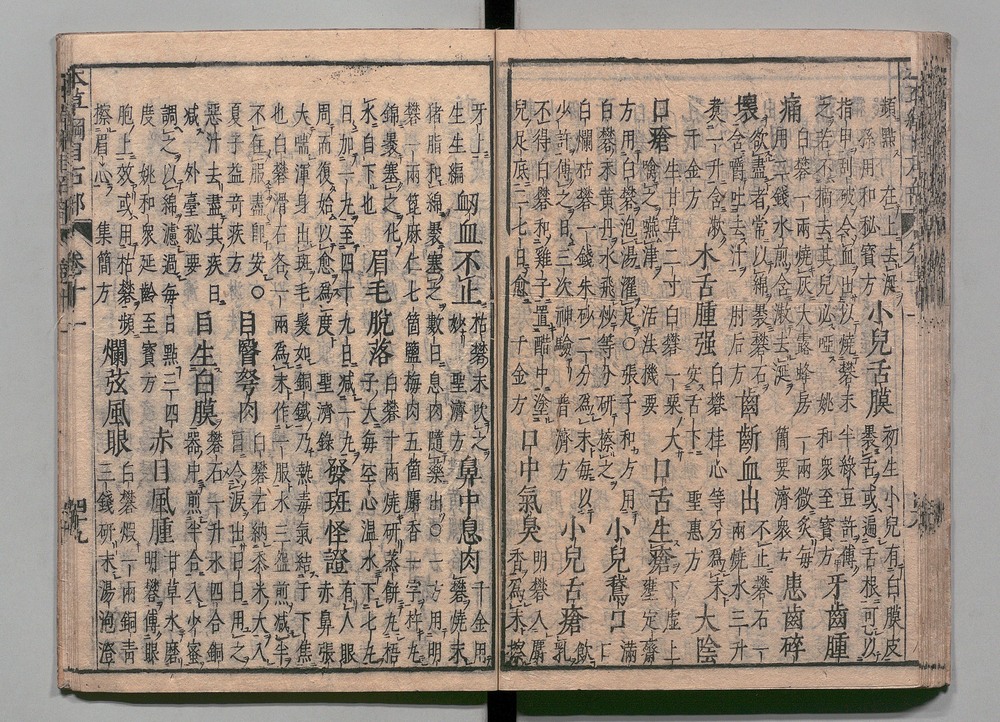 類點ス在上去涎 小兒舌膜 初生小兒有白膜皮
裹舌或遍舌根可以
指甲刮破令血出以燒礬末
半綠豆許傅
之若不摘去其兒必啞 姚
和衆至寶方 牙齒腫
痛 白礬一兩燒灰大露蜂房
一兩微炙毎
用二錢水煎含漱去涎
簡要濟衆 患齒碎
壞 欲盡者常以綿裹礬石
含嚼吐去汁 肘后方 齒齗血出 不止礬石一
兩燒水三升
煮一升含漱 千金方 木舌腫強 白礬桂心等分爲末
安舌下 聖惠方 太陰
口瘡 生甘草二寸白礬一粟大
噙之嚥津 活法機要 口舌生瘡 下虛上壅定齋
方用白礬泡湯濯足○張子和方用
白礬末黃丹水飛炒等分研擦之 小兒鵞口 滿口
白爛枯礬一錢朱砂二分爲末毎以
少許傅之日三次神驗 普濟方 小兒舌瘡 飲乳
不得白礬和雞子置醋中塗
兒足底二七日愈 千金方 口中氣臭 明礬入麝
香爲末擦
牙上
生生編 衂血不止 枯礬末吹之
妙 聖濟方 鼻中息肉 千金用
礬燒末
猪脂和綿裹塞之數日息肉隨藥出○一方用明
礬一兩蓖麻仁七箇鹽梅肉五箇麝香一字杵丸
綿裹塞之化
水自下也 眉毛脫落 白礬十兩燒研蒸餅丸梧
子大毎空心溫水下七丸
日加一丸至四十九日減一丸
周而復始以愈爲度 聖濟錄 發斑怪證 有人眼
赤鼻張
大喘渾身出斑毛髮如銅鐵乃熱毒氣結于下焦
也白礬滑石各一兩爲末作一服水三盌煎減半
不住服盡卽安○
夏子益奇疾方 目瞖努肉 白礬石納黍米大入
目令淚出日日用之
惡汁去盡其疾日
減 外臺秘要 目生白膜 礬石一升水四合銅
器中煎半合入少蜜
調之以綿濾過毎日點三四
度 姚和衆延齡至寶方 赤目風腫 甘草水磨
明礬傅眼
胞上效或用枯礬頻
擦眉心 集簡方 爛弦風眼 白礬煆一兩銅青
三錢研末湯泡澄
本草綱目石部 卷十一 四十九